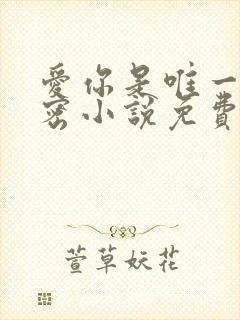 愛你是唯一
密小說免費
萱草妖花